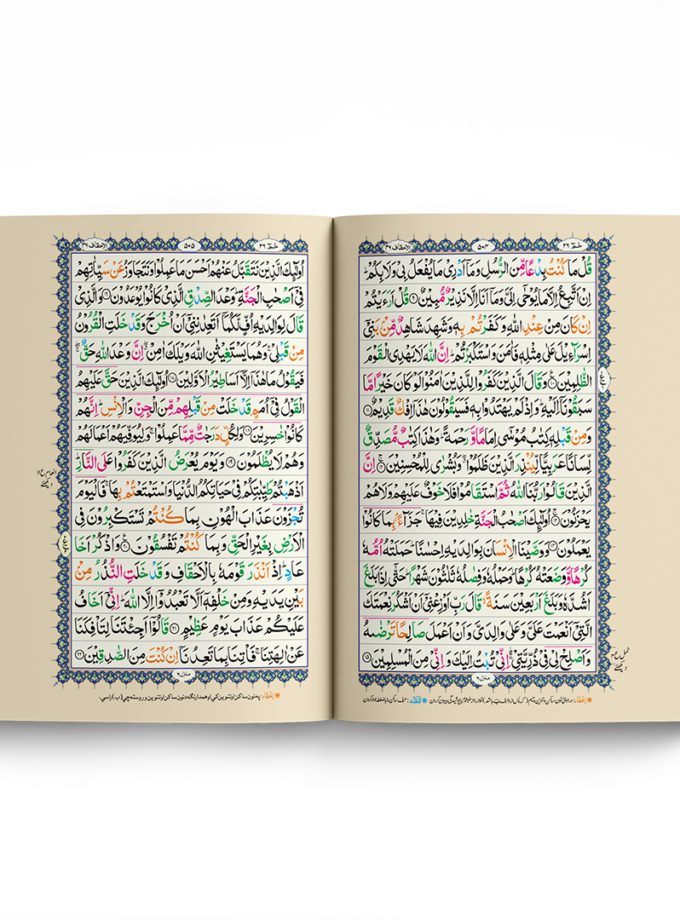 حٰمٓ ٢٦
الاحقاف ٤٦
قُلْ مَا كُنْتُ بِدْعًا مِّنَ الرُّسُلِ وَمَآ اَدْرِیْ مَا یُفْعَلُ بِیْ وَلَا بِكُمْ ؕ
اِنْ اَتَّبِعُ اِلَّا مَا یُوْحٰۤی اِلَیَّ وَمَآ اَنَا اِلَّا نَذِیْرٌ مُّبِیْنٌ ۝ قُلْ اَرَءَیْتُمْ
اِنْ كَانَ مِنْ عِنْدِ اللّٰهِ وَكَفَرْتُمْ بِهٖ وَشَهِدَ شَاهِدٌ مِّنْۢ بَنِیْۤ
اِسْرَآءِیْلَ عَلٰی مِثْلِهٖ فَاٰمَنَ وَاسْتَكْبَرْتُمْ ؕ اِنَّ اللّٰهَ لَا یَهْدِی الْقَوْمَ
الظّٰلِمِیْنَ ۝ وَقَالَ الَّذِیْنَ كَفَرُوْا لِلَّذِیْنَ اٰمَنُوْا لَوْ كَانَ خَیْرًا مَّا
سَبَقُوْنَاۤ اِلَیْهِ ؕ وَاِذْ لَمْ یَهْتَدُوْا بِهٖ فَسَیَقُوْلُوْنَ هٰذَاۤ اِفْكٌ قَدِیْمٌ ۝
وَمِنْ قَبْلِهٖ كِتٰبُ مُوْسٰۤی اِمَامًا وَّرَحْمَةً ؕ وَهٰذَا كِتٰبٌ مُّصَدِّقٌ
لِّسَانًا عَرَبِیًّا لِّیُنْذِرَ الَّذِیْنَ ظَلَمُوْا ۖ وَبُشْرٰی لِلْمُحْسِنِیْنَ ۝ اِنَّ
الَّذِیْنَ قَالُوْا رَبُّنَا اللّٰهُ ثُمَّ اسْتَقَامُوْا فَلَا خَوْفٌ عَلَیْهِمْ وَلَا هُمْ
یَحْزَنُوْنَ ۝ اُولٰٓئِكَ اَصْحٰبُ الْجَنَّةِ خٰلِدِیْنَ فِیْهَا ۚ جَزَآءًۢ بِمَا كَانُوْا
یَعْمَلُوْنَ ۝ وَوَصَّیْنَا الْاِنْسَانَ بِوَالِدَیْهِ اِحْسٰنًا ؕ حَمَلَتْهُ اُمُّهٗ
كُرْهًا وَّوَضَعَتْهُ كُرْهًا ؕ وَحَمْلُهٗ وَفِصٰلُهٗ ثَلٰثُوْنَ شَهْرًا ؕ حَتّٰۤی اِذَا بَلَغَ
اَشُدَّهٗ وَبَلَغَ اَرْبَعِیْنَ سَنَةً ۙ قَالَ رَبِّ اَوْزِعْنِیْۤ اَنْ اَشْكُرَ نِعْمَتَكَ
الَّتِیْۤ اَنْعَمْتَ عَلَیَّ وَعَلٰی وَالِدَیَّ وَاَنْ اَعْمَلَ صَالِحًا تَرْضٰىهُ
وَاَصْلِحْ لِیْ فِیْ ذُرِّیَّتِیْ ؕ اِنِّیْ تُبْتُ اِلَیْكَ وَاِنِّیْ مِنَ الْمُسْلِمِیْنَ ۝
حٰمٓ ٢٦
۵۰۵
الاحقاف ٤٦
اُولٰٓئِكَ الَّذِیْنَ نَتَقَبَّلُ عَنْهُمْ اَحْسَنَ مَا عَمِلُوْا وَنَتَجَاوَزُ عَنْ سَیِّاٰتِهِمْ
فِیْۤ اَصْحٰبِ الْجَنَّةِ ؕ وَعْدَ الصِّدْقِ الَّذِیْ كَانُوْا یُوْعَدُوْنَ ۝ وَالَّذِیْ
قَالَ لِوَالِدَیْهِ اُفٍّ لَّكُمَاۤ اَتَعِدٰنِنِیْۤ اَنْ اُخْرَجَ وَقَدْ خَلَتِ الْقُرُوْنُ
مِنْ قَبْلِیْ ۚ وَهُمَا یَسْتَغِیْثٰنِ اللّٰهَ وَیْلَكَ اٰمِنْ ۖ اِنَّ وَعْدَ اللّٰهِ حَقٌّ ۚ
فَیَقُوْلُ مَا هٰذَاۤ اِلَّاۤ اَسَاطِیْرُ الْاَوَّلِیْنَ ۝ اُولٰٓئِكَ الَّذِیْنَ حَقَّ عَلَیْهِمُ
الْقَوْلُ فِیْۤ اُمَمٍ قَدْ خَلَتْ مِنْ قَبْلِهِمْ مِّنَ الْجِنِّ وَالْاِنْسِ ؕ اِنَّهُمْ
كَانُوْا خٰسِرِیْنَ ۝ وَلِكُلٍّ دَرَجٰتٌ مِّمَّا عَمِلُوْا ۚ وَلِیُوَفِّیَهُمْ اَعْمَالَهُمْ
وَهُمْ لَا یُظْلَمُوْنَ ۝ وَیَوْمَ یُعْرَضُ الَّذِیْنَ كَفَرُوْا عَلَی النَّارِ ؕ
اَذْهَبْتُمْ طَیِّبٰتِكُمْ فِیْ حَیَاتِكُمُ الدُّنْیَا وَاسْتَمْتَعْتُمْ بِهَا ۚ فَالْیَوْمَ
تُجْزَوْنَ عَذَابَ الْهُوْنِ بِمَا كُنْتُمْ تَسْتَكْبِرُوْنَ فِی
الْاَرْضِ بِغَیْرِ الْحَقِّ وَبِمَا كُنْتُمْ تَفْسُقُوْنَ ۝ وَاذْكُرْ اَخَا
عَادٍ ؕ اِذْ اَنْذَرَ قَوْمَهٗ بِالْاَحْقَافِ وَقَدْ خَلَتِ النُّذُرُ مِنْۢ
بَیْنِ یَدَیْهِ وَمِنْ خَلْفِهٖۤ اَلَّا تَعْبُدُوْۤا اِلَّا اللّٰهَ ؕ اِنِّیْۤ اَخَافُ
عَلَیْكُمْ عَذَابَ یَوْمٍ عَظِیْمٍ ۝ قَالُوْۤا اَجِئْتَنَا لِتَاْفِكَنَا
عَنْ اٰلِهَتِنَا ۚ فَاْتِنَا بِمَا تَعِدُنَاۤ اِنْ كُنْتَ مِنَ الصّٰدِقِیْنَ ۝